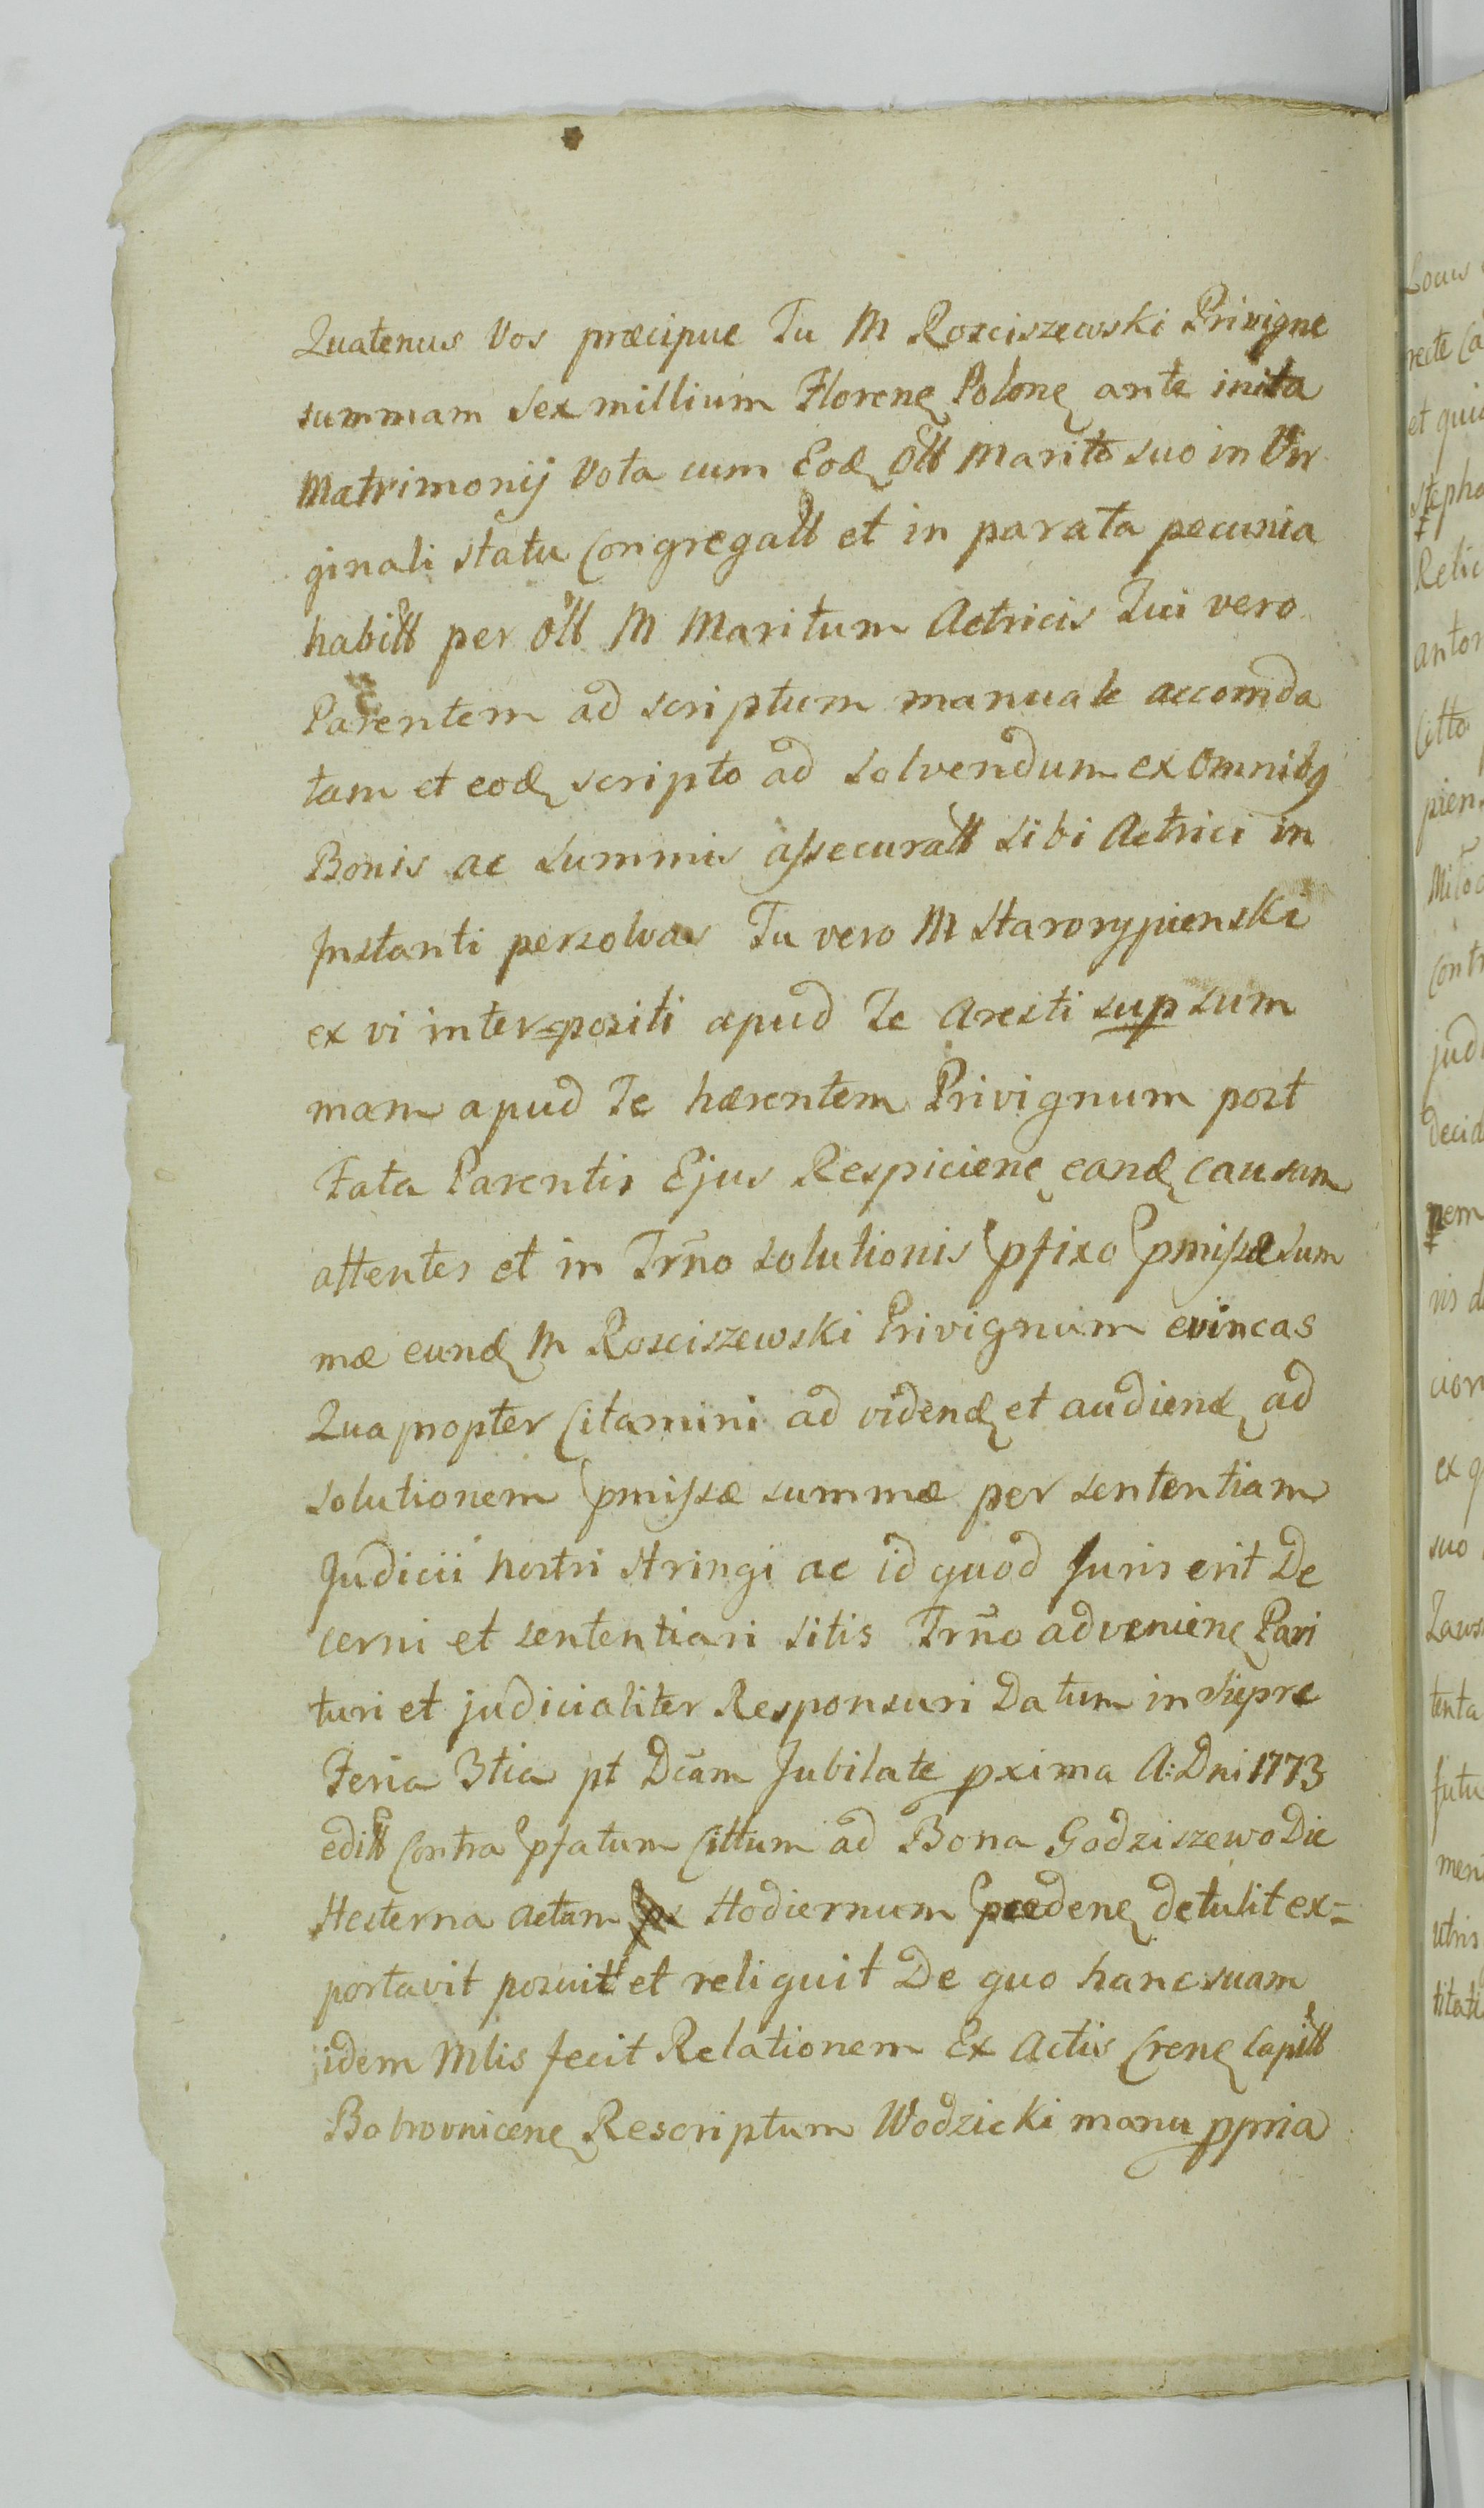 Quatenus Vos præcipue Tu M Rosciszewski Privigne
summam sex millium Florenę Polonę ante inita
Matrimonij Vota cum Eodę Olł Marito suo in Vir
ginali statu Congregałł et in parata pecunia
habiłł per Olł M Maritum Actricis Tui vero
Parentem ad scriptum manuale accomda
tam et eodę scripto ad solvendum ex omnibq
Bonis ac summis assecurałł sibi Actrici in
Instanti persolvas Tu vero M Starorypienski
ex vi interpositi apud Te Aresti sup sum
mam apud Te hærentem Privignum post
Fata Parentis Ejus Respicienę eandę causam
attentes et in Trño solutionis pfixo pmissæ sum
mæ eundę M Rosciszewski Privignum evincas
Quapropter Citamini ad videndę et audiendę ad
solutionem pmissæ summæ per sententiam
Judicii nostri stringi ac id quod Juris erit De
cerni et sententiari sitis Trño advenienę Pari
turi et judicialiter Responsuri Datum in Siepre
Feria 3tia pt Dcam Jubilate pxima A: Dni 1773
ediłł Contra pfatum Cittum ad Bona Godziszewo Die
Hesterna actum Hodiernum pcedenę detulit ex=
portavit posuit et reliquit De quo hanc suam
idem Mlis fecit Relationem Ex Actis Crenę Capiłł
Bobrovnicenę Rescriptum Wodzicki manu ppria
Louis
recte Ca
et qui
Stepha
Relic
anton
Citto
pien
Miło
Contr
judi
decid
nem
ris d
cion
ex q
suo
Zaws
tenta
futu
men
utris
titati